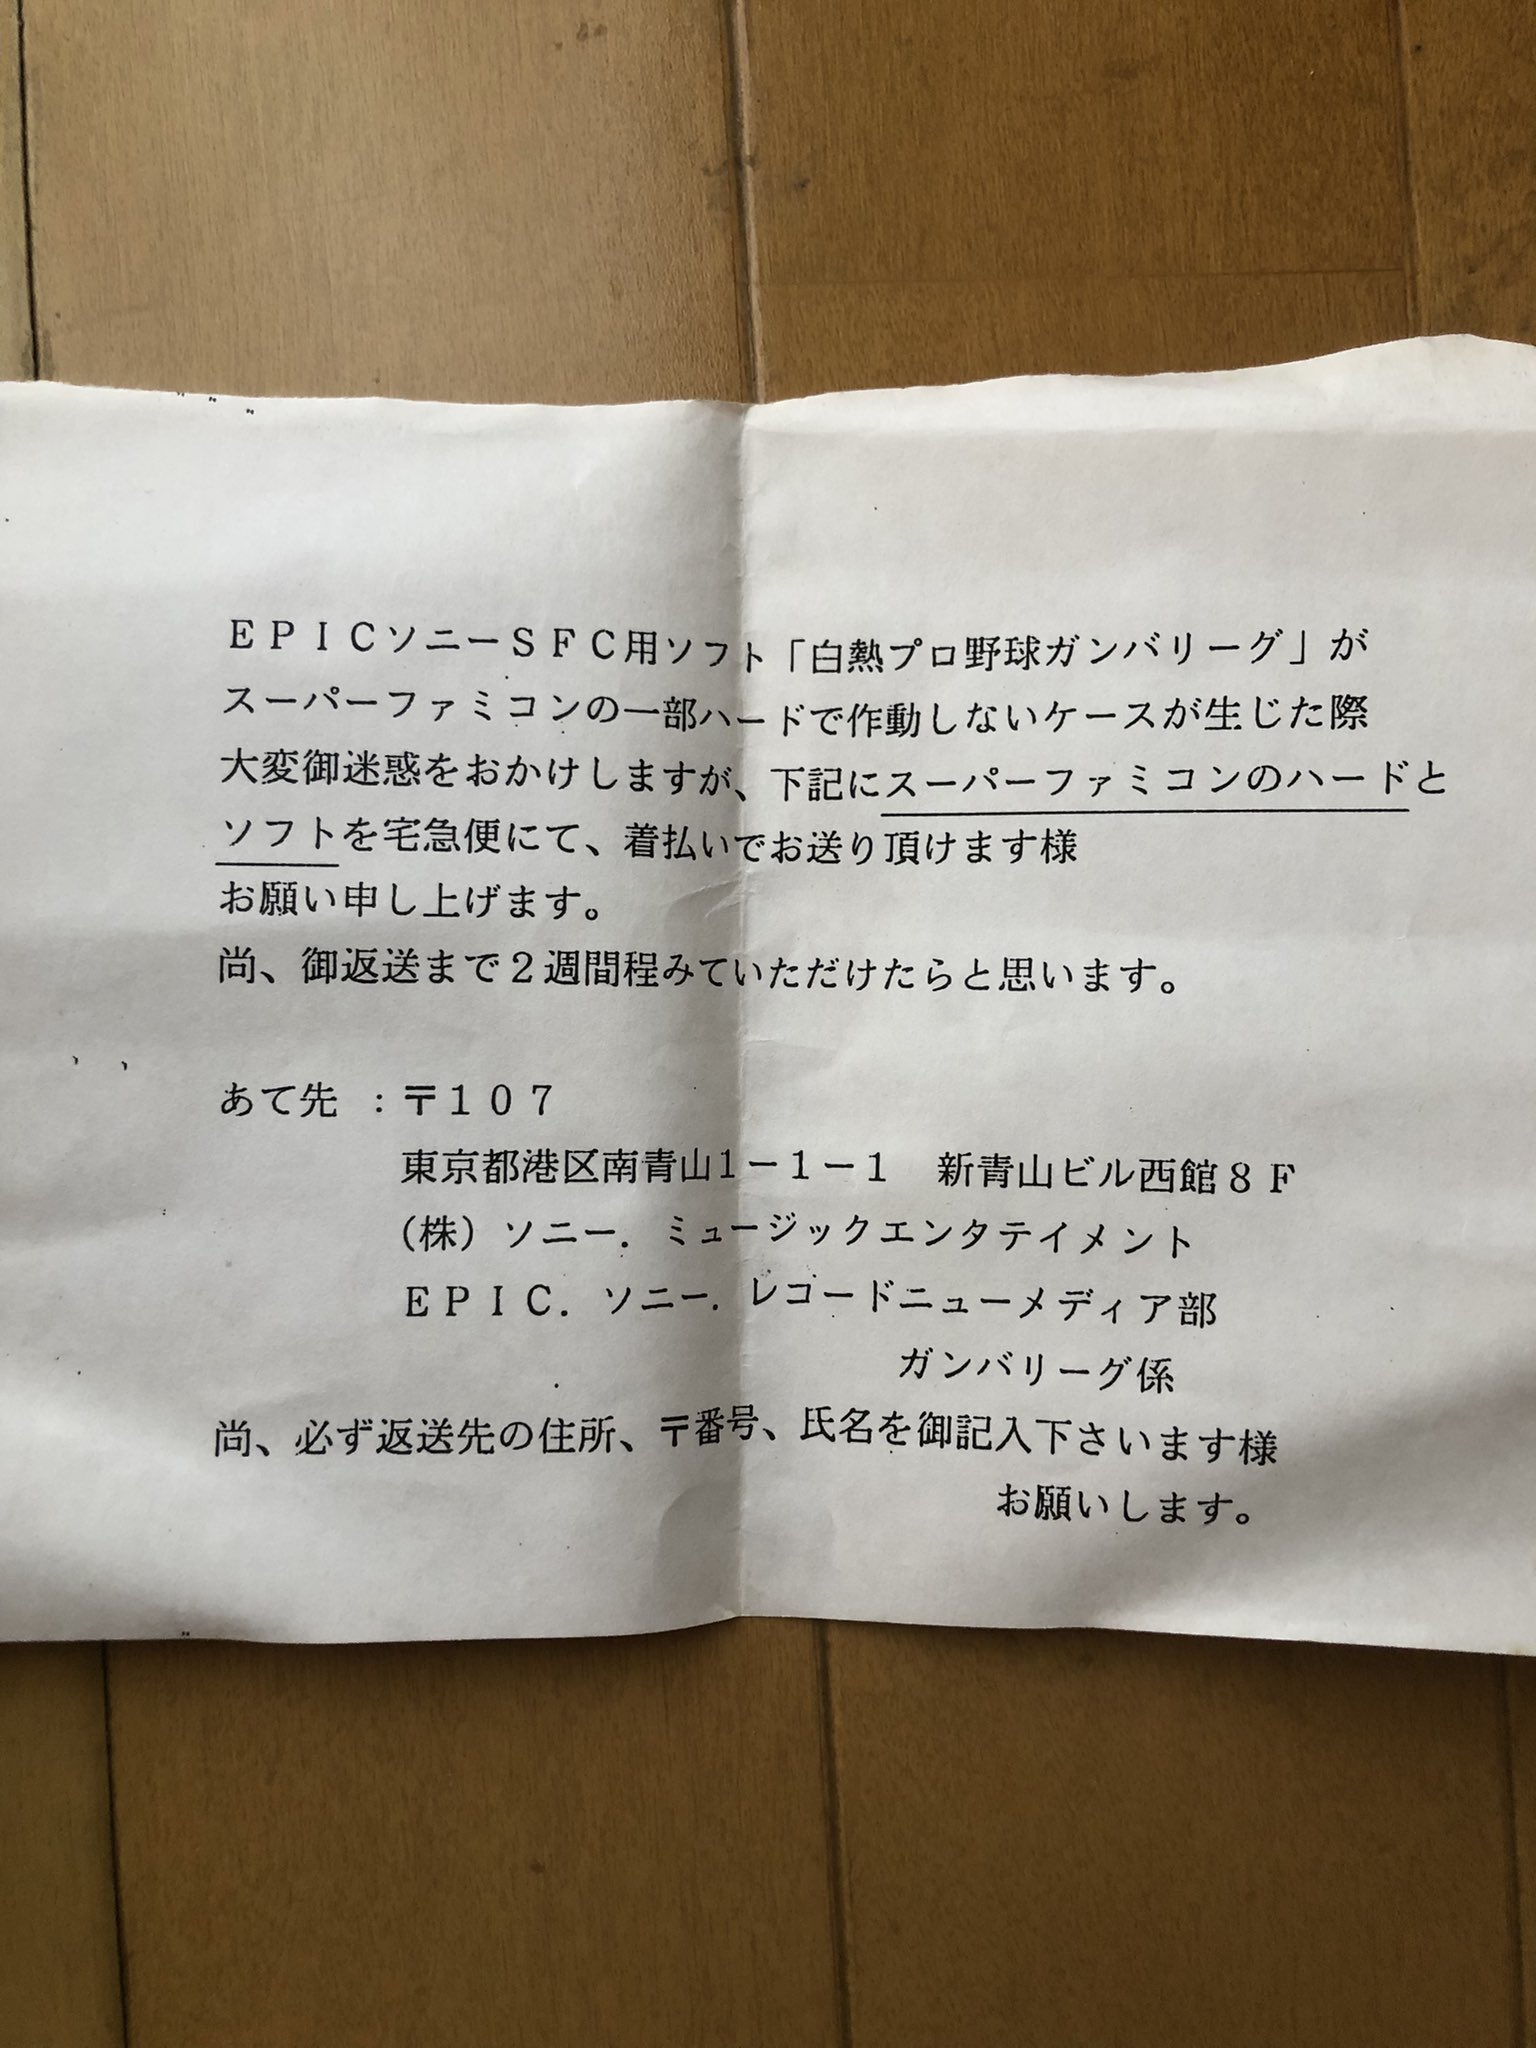 ＥＰＩＣソニーＳＦＣ用ソフト「白熱プロ野球ガンバリーグ」が
スーパーファミコンの一部ハードで作動しないケースが生じた際
大変御迷惑をおかけしますが、下記にスーパーファミコンのハードと
ソフトを宅急便にて、着払いでお送り頂けます様
お願い申し上げます。
尚、御返送まで２週間程みていただけたらと思います。
あて先　：〒１０７
東京都港区南青山１－１－１　新青山ビル西館８Ｆ
（株）ソニー．ミュージックエンタテイメント
ＥＰＩＣ．ソニー．レコードニューメディア部
ガンバリーグ係
尚、必ず返送先の住所、〒番号、氏名を御記入下さいます様
お願いします。